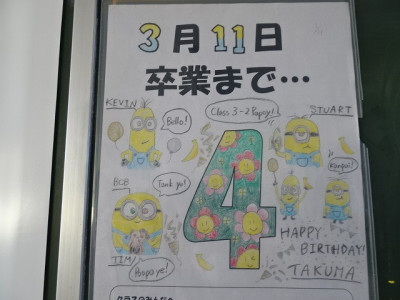 3月11日
卒業まで…
KEVIN
BoBo!
Class 3-2 Popoy!
STUART
4
Kanpai!
BOB
Tank yu!
TIM
Poopaye!
HAPPY
BIRTHDAY!
TAKUMA
クラスのみんなへ